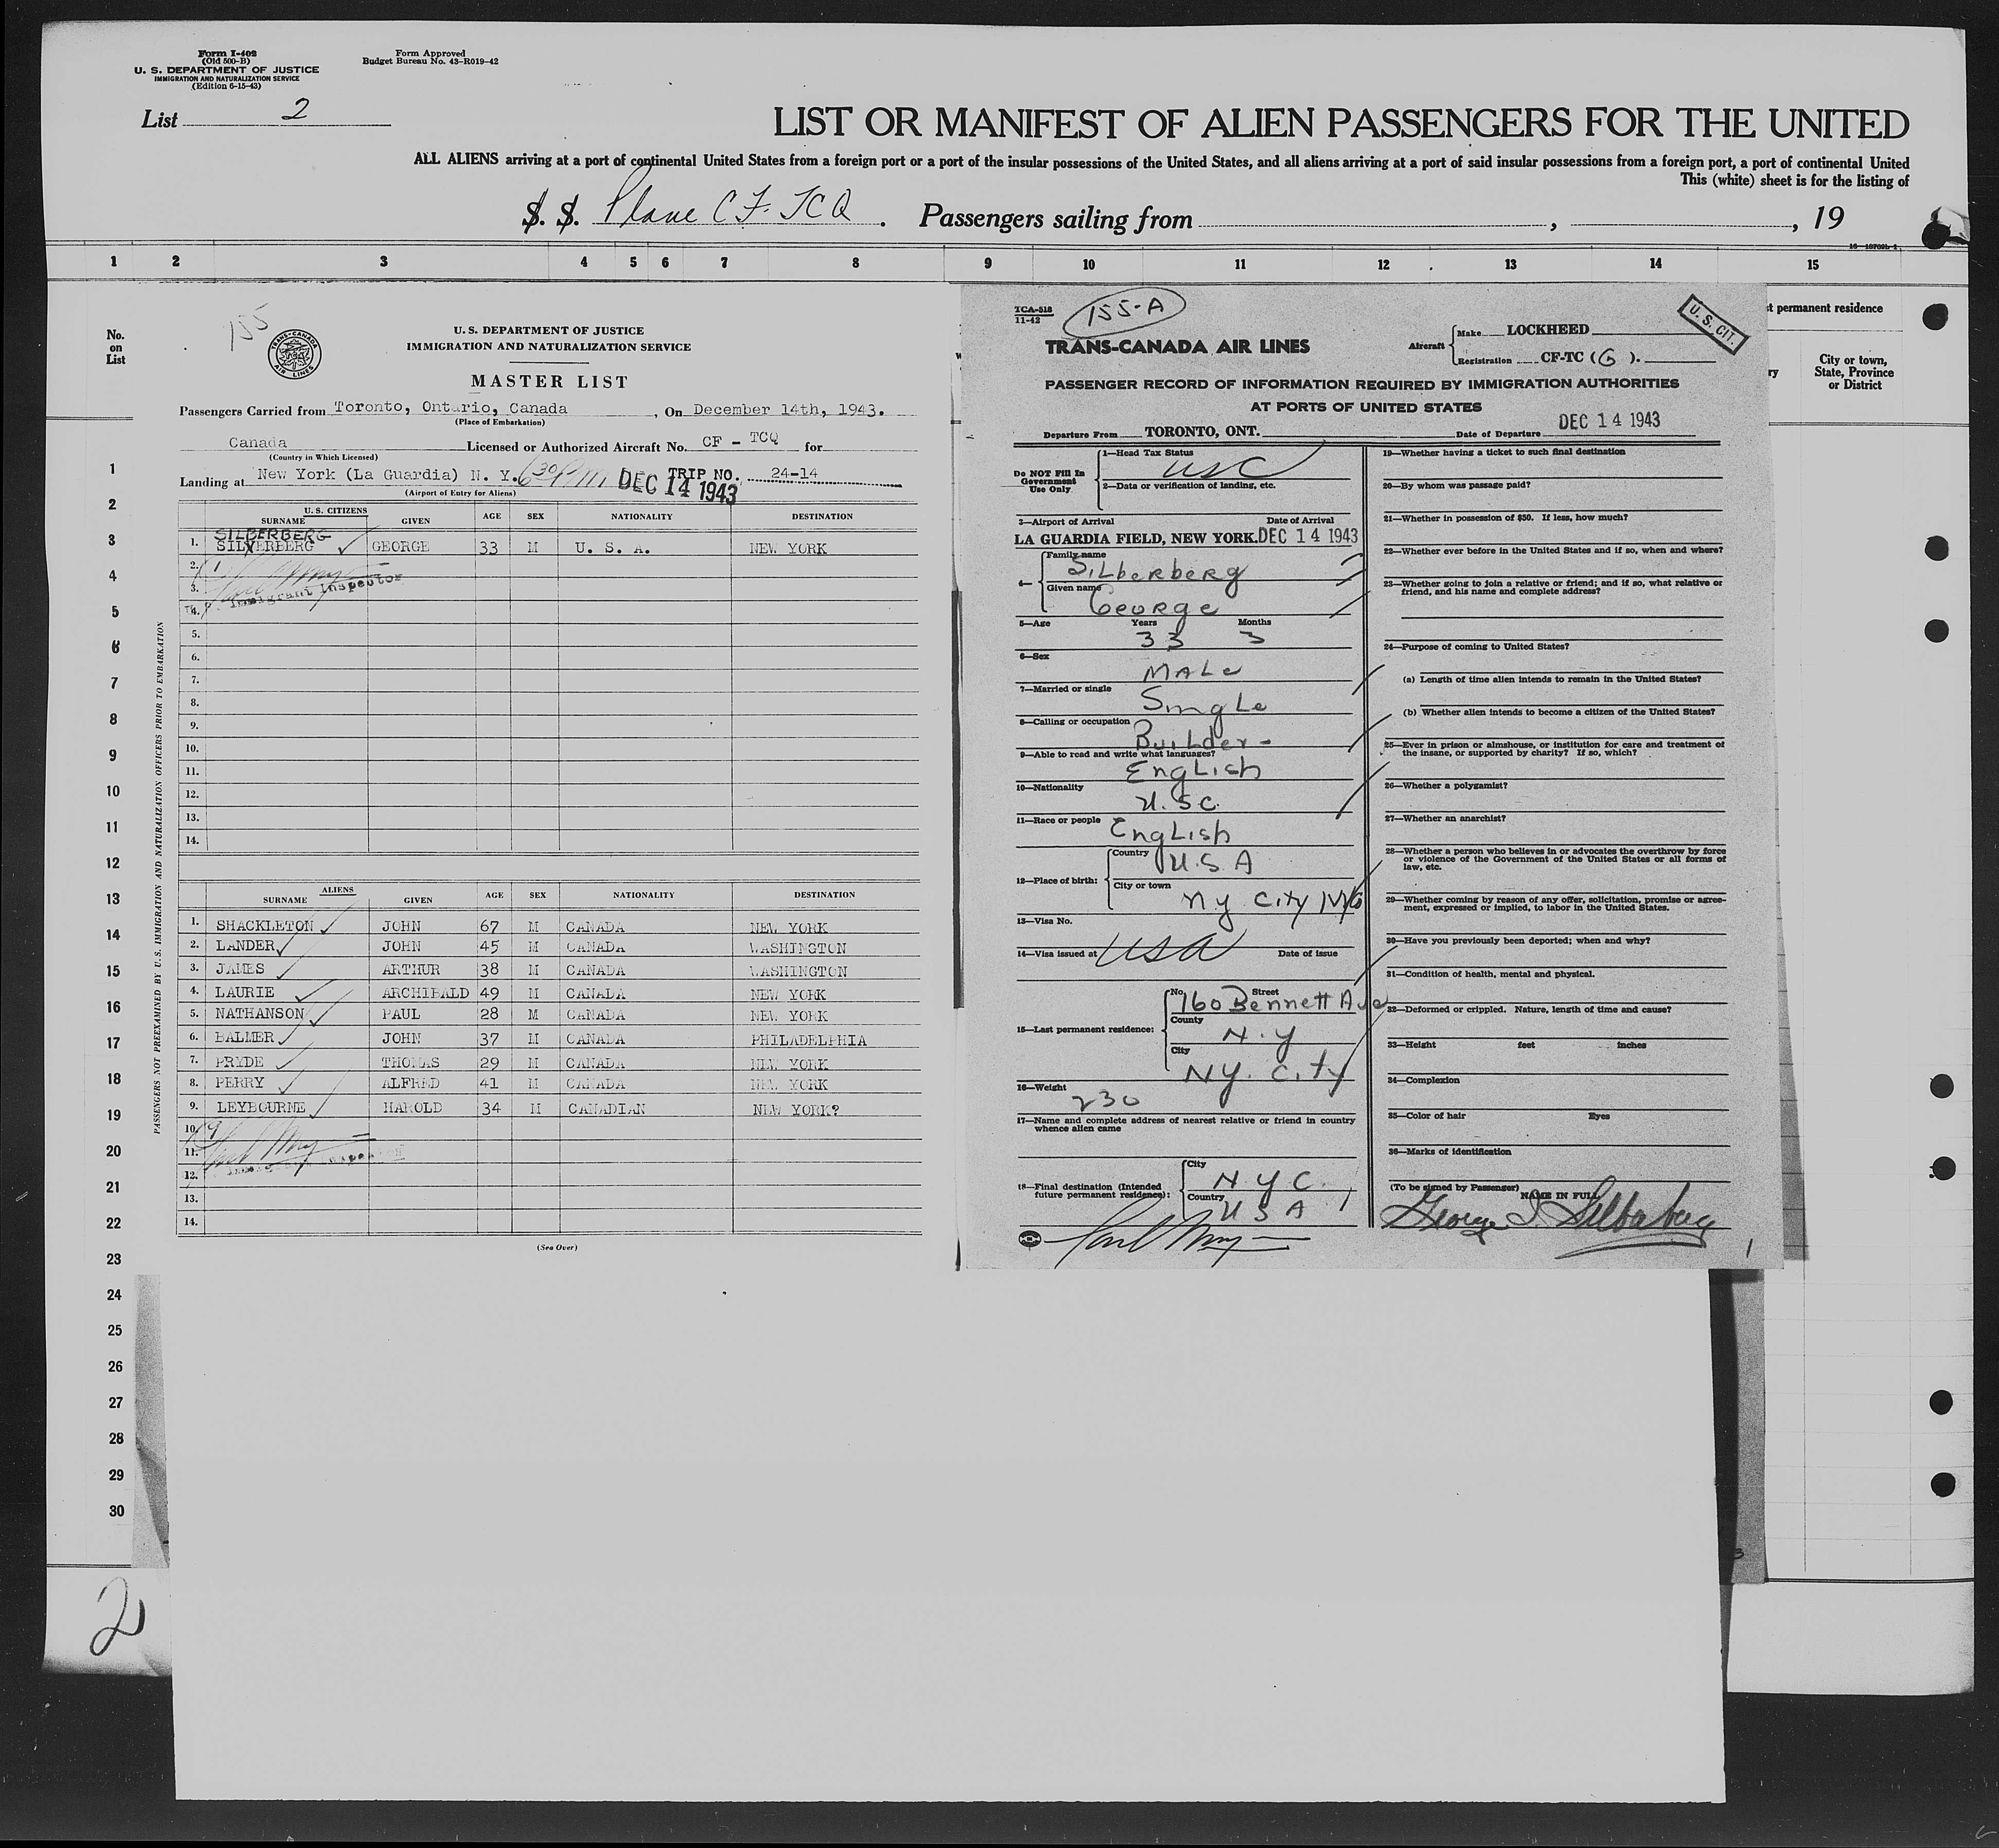 Form I-402
(Old 500-B)
U. S. DEPARTMENT OF JUSTICE
IMMIGRATION AND NATURALIZATION SERVICE
(Edition 6-15-43)
Form Approved
Budget Bureau No. 43-R019-42
List 2
LIST OR MANIFEST OF ALIEN PASSENGERS FOR THE UNITED
ALL ALIENS arriving at a port of continental United States from a foreign port or a port of the insular possessions of the United States, and all aliens arriving at a port of said insular possessions from a foreign port, a port of continental United
This (white) sheet is for the listing of
S. S. Plane CF-TCQ . Passengers sailing from , , 19
1 2 3 4 5 6 7 8 9 10 11 12 13 14 15
No.
on
List
1
2
3
4
5
6
7
8
9
10
11
12
13
14
15
16
17
18
19
20
21
22
23
24
25
26
27
28
29
30
2
155
TRANS-CANADA AIR LINES
U. S. DEPARTMENT OF JUSTICE
IMMIGRATION AND NATURALIZATION SERVICE
MASTER LIST
Passengers Carried from Toronto, Ontario, Canada , On December 14th, 1943.
(Place of Embarkation)
Canada Licensed or Authorized Aircraft No. CF - TCQ for
(Country in Which Licensed)
Landing at New York (La Guardia) N. Y. 630 PM DEC 14 1943 TRIP NO. 24-14
(Airport of Entry for Aliens)
PASSENGERS NOT PREEXAMINED BY U. S. IMMIGRATION AND NATURALIZATION OFFICERS PRIOR TO EMBARKATION
U. S. CITIZENS
SURNAME GIVEN AGE SEX NATIONALITY DESTINATION
SILBERBERG
1. SILVERBERG GEORGE 33 M U. S. A. NEW YORK
2.
3. Immigrant Inspector
4.
5.
6.
7.
8.
9.
10.
11.
12.
13.
14.
ALIENS
SURNAME GIVEN AGE SEX NATIONALITY DESTINATION
1. SHACKLETON JOHN 67 M CANADA NEW YORK
2. LANDER JOHN 45 M CANADA WASHINGTON
3. JAMES ARTHUR 38 M CANADA WASHINGTON
4. LAURIE ARCHIBALD 49 M CANADA NEW YORK
5. NATHANSON PAUL 28 M CANADA NEW YORK
6. BALMER JOHN 37 M CANADA PHILADELPHIA
7. PRYDE THOMAS 29 M CANADA NEW YORK
8. PERRY ALFRED 41 M CANADA NEW YORK
9. LEYBOURNE HAROLD 34 M CANADIAN NEW YORK?
10.
11.
12.
13.
14.
(See Over)
TCA-518
11-42
155-A
TRANS-CANADA AIR LINES
Aircraft Make LOCKHEED
Registration CF-TC (G).
U. S. CIT.
PASSENGER RECORD OF INFORMATION REQUIRED BY IMMIGRATION AUTHORITIES
AT PORTS OF UNITED STATES
Departure From TORONTO, ONT. Date of Departure DEC 14 1943
Do NOT Fill In
Government
Use Only
1—Head Tax Status
USC
2—Data or verification of landing, etc.
3—Airport of Arrival Date of Arrival
LA GUARDIA FIELD, NEW YORK. DEC 14 1943
4— Family name
Silberberg
Given name
George
5—Age Years Months
33 3
6—Sex
Male
7—Married or single
Single
8—Calling or occupation
Builder-
9—Able to read and write what languages?
English
10—Nationality
U.S.C.
11—Race or people English
12—Place of birth: Country U.S.A
City or town
N.Y. City
13—Visa No.
14—Visa issued at USA Date of issue
15—Last permanent residence: No. Street
160 Bennett Ave
County
N.Y
City
NY. City
16—Weight
230
17—Name and complete address of nearest relative or friend in country
whence alien came
18—Final destination (Intended
future permanent residence): City
N.Y.C.
Country
USA
19—Whether having a ticket to such final destination
20—By whom was passage paid?
21—Whether in possession of $50. If less, how much?
22—Whether ever before in the United States and if so, when and where?
23—Whether going to join a relative or friend; and if so, what relative or
friend, and his name and complete address?
24—Purpose of coming to United States?
(a) Length of time alien intends to remain in the United States?
(b) Whether alien intends to become a citizen of the United States?
25—Ever in prison or almshouse, or institution for care and treatment of
the insane, or supported by charity? If so, which?
26—Whether a polygamist?
27—Whether an anarchist?
28—Whether a person who believes in or advocates the overthrow by force
or violence of the Government of the United States or all forms of
law, etc.
29—Whether coming by reason of any offer, solicitation, promise or agree-
ment, expressed or implied, to labor in the United States.
30—Have you previously been deported; when and why?
31—Condition of health, mental and physical.
32—Deformed or crippled. Nature, length of time and cause?
33—Height feet inches
34—Complexion
35—Color of hair Eyes
36—Marks of identification
(To be signed by Passenger) NAME IN FULL
George J Silberberg
1
t permanent residence
City or town,
State, Province
or District